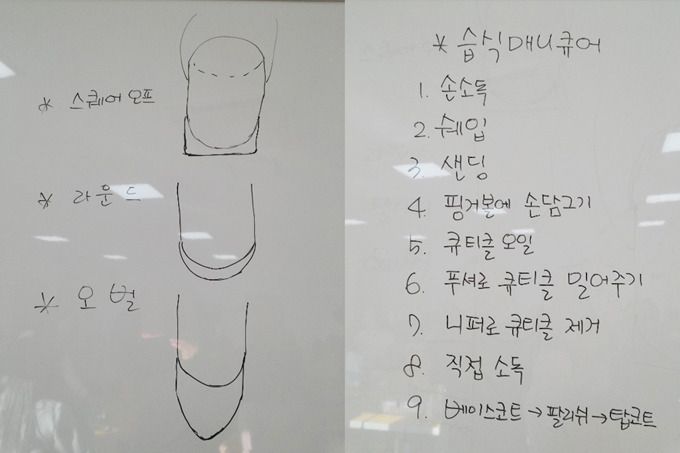 * 스퀘어 오프
* 라운드
* 오벌
* 습식매니큐어
1. 손소독
2. 쉐입
3. 샌딩
4. 핑거볼에 손담그기
5. 큐티클 오일
6. 푸셔로 큐티클 밀어주기
7. 니퍼로 큐티클 제거
8. 직접 소독
9. 베이스코트→팔리쉬→탑코트